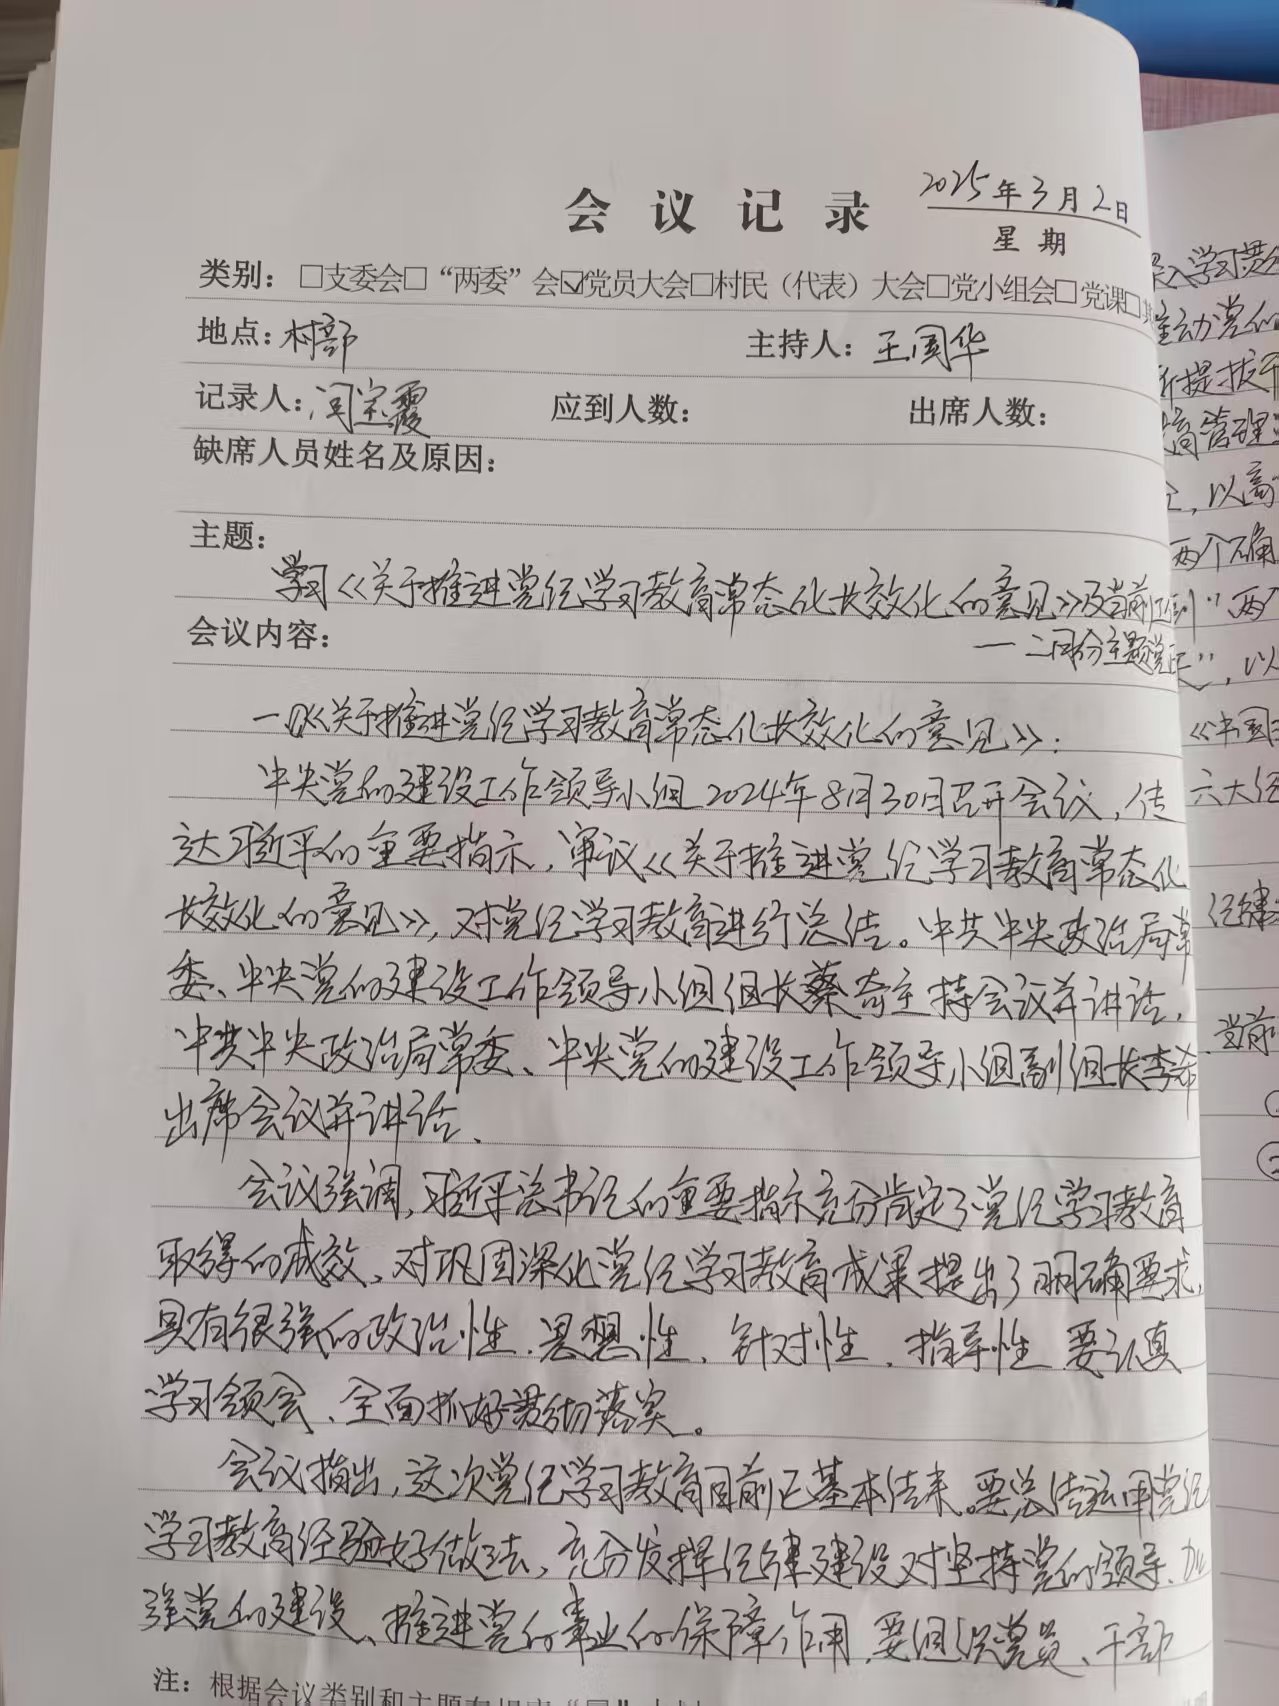 会议记录
2025年3月2日
星期
类别：□支委会□“两委”会☑党员大会□村民（代表）大会□党小组会□党课□其
地点：村部 主持人：王国华
记录人：闫宗霞 应到人数： 出席人数：
缺席人员姓名及原因：
主题：
学习《关于推进党纪学习教育常态化长效化的意见》及当前
会议内容：
一二月份主题党日
一、《关于推进党纪学习教育常态化长效化的意见》：
中央党的建设工作领导小组2024年8月30日召开会议，传
达习近平的重要指示，审议《关于推进党纪学习教育常态化
长效化的意见》，对党纪学习教育进行总结。中共中央政治局常
委、中央党的建设工作领导小组组长蔡奇主持会议并讲话，
中共中央政治局常委、中央党的建设工作领导小组副组长李希
出席会议并讲话、
会议强调，习近平总书记的重要指示充分肯定了党纪学习教育
取得的成效、对巩固深化党纪学习教育成果提出了明确要求，
具有很强的政治性、思想性、针对性、指导性 要认真
学习领会、全面抓好贯彻落实。
会议指出，这次党纪学习教育目前已基本结束。要总结运用党纪
学习教育经验好做法、充分发挥纪律建设对坚持党的领导、加
强党的建设、推进党的事业的保障作用、要组织党员、干部
注：根据会议类别和主题在相应“□”
学习贯
推动党的
提拔干
管理
以高
两个确
“两个
”，以
《中国
六大
纪律
当前
①
②